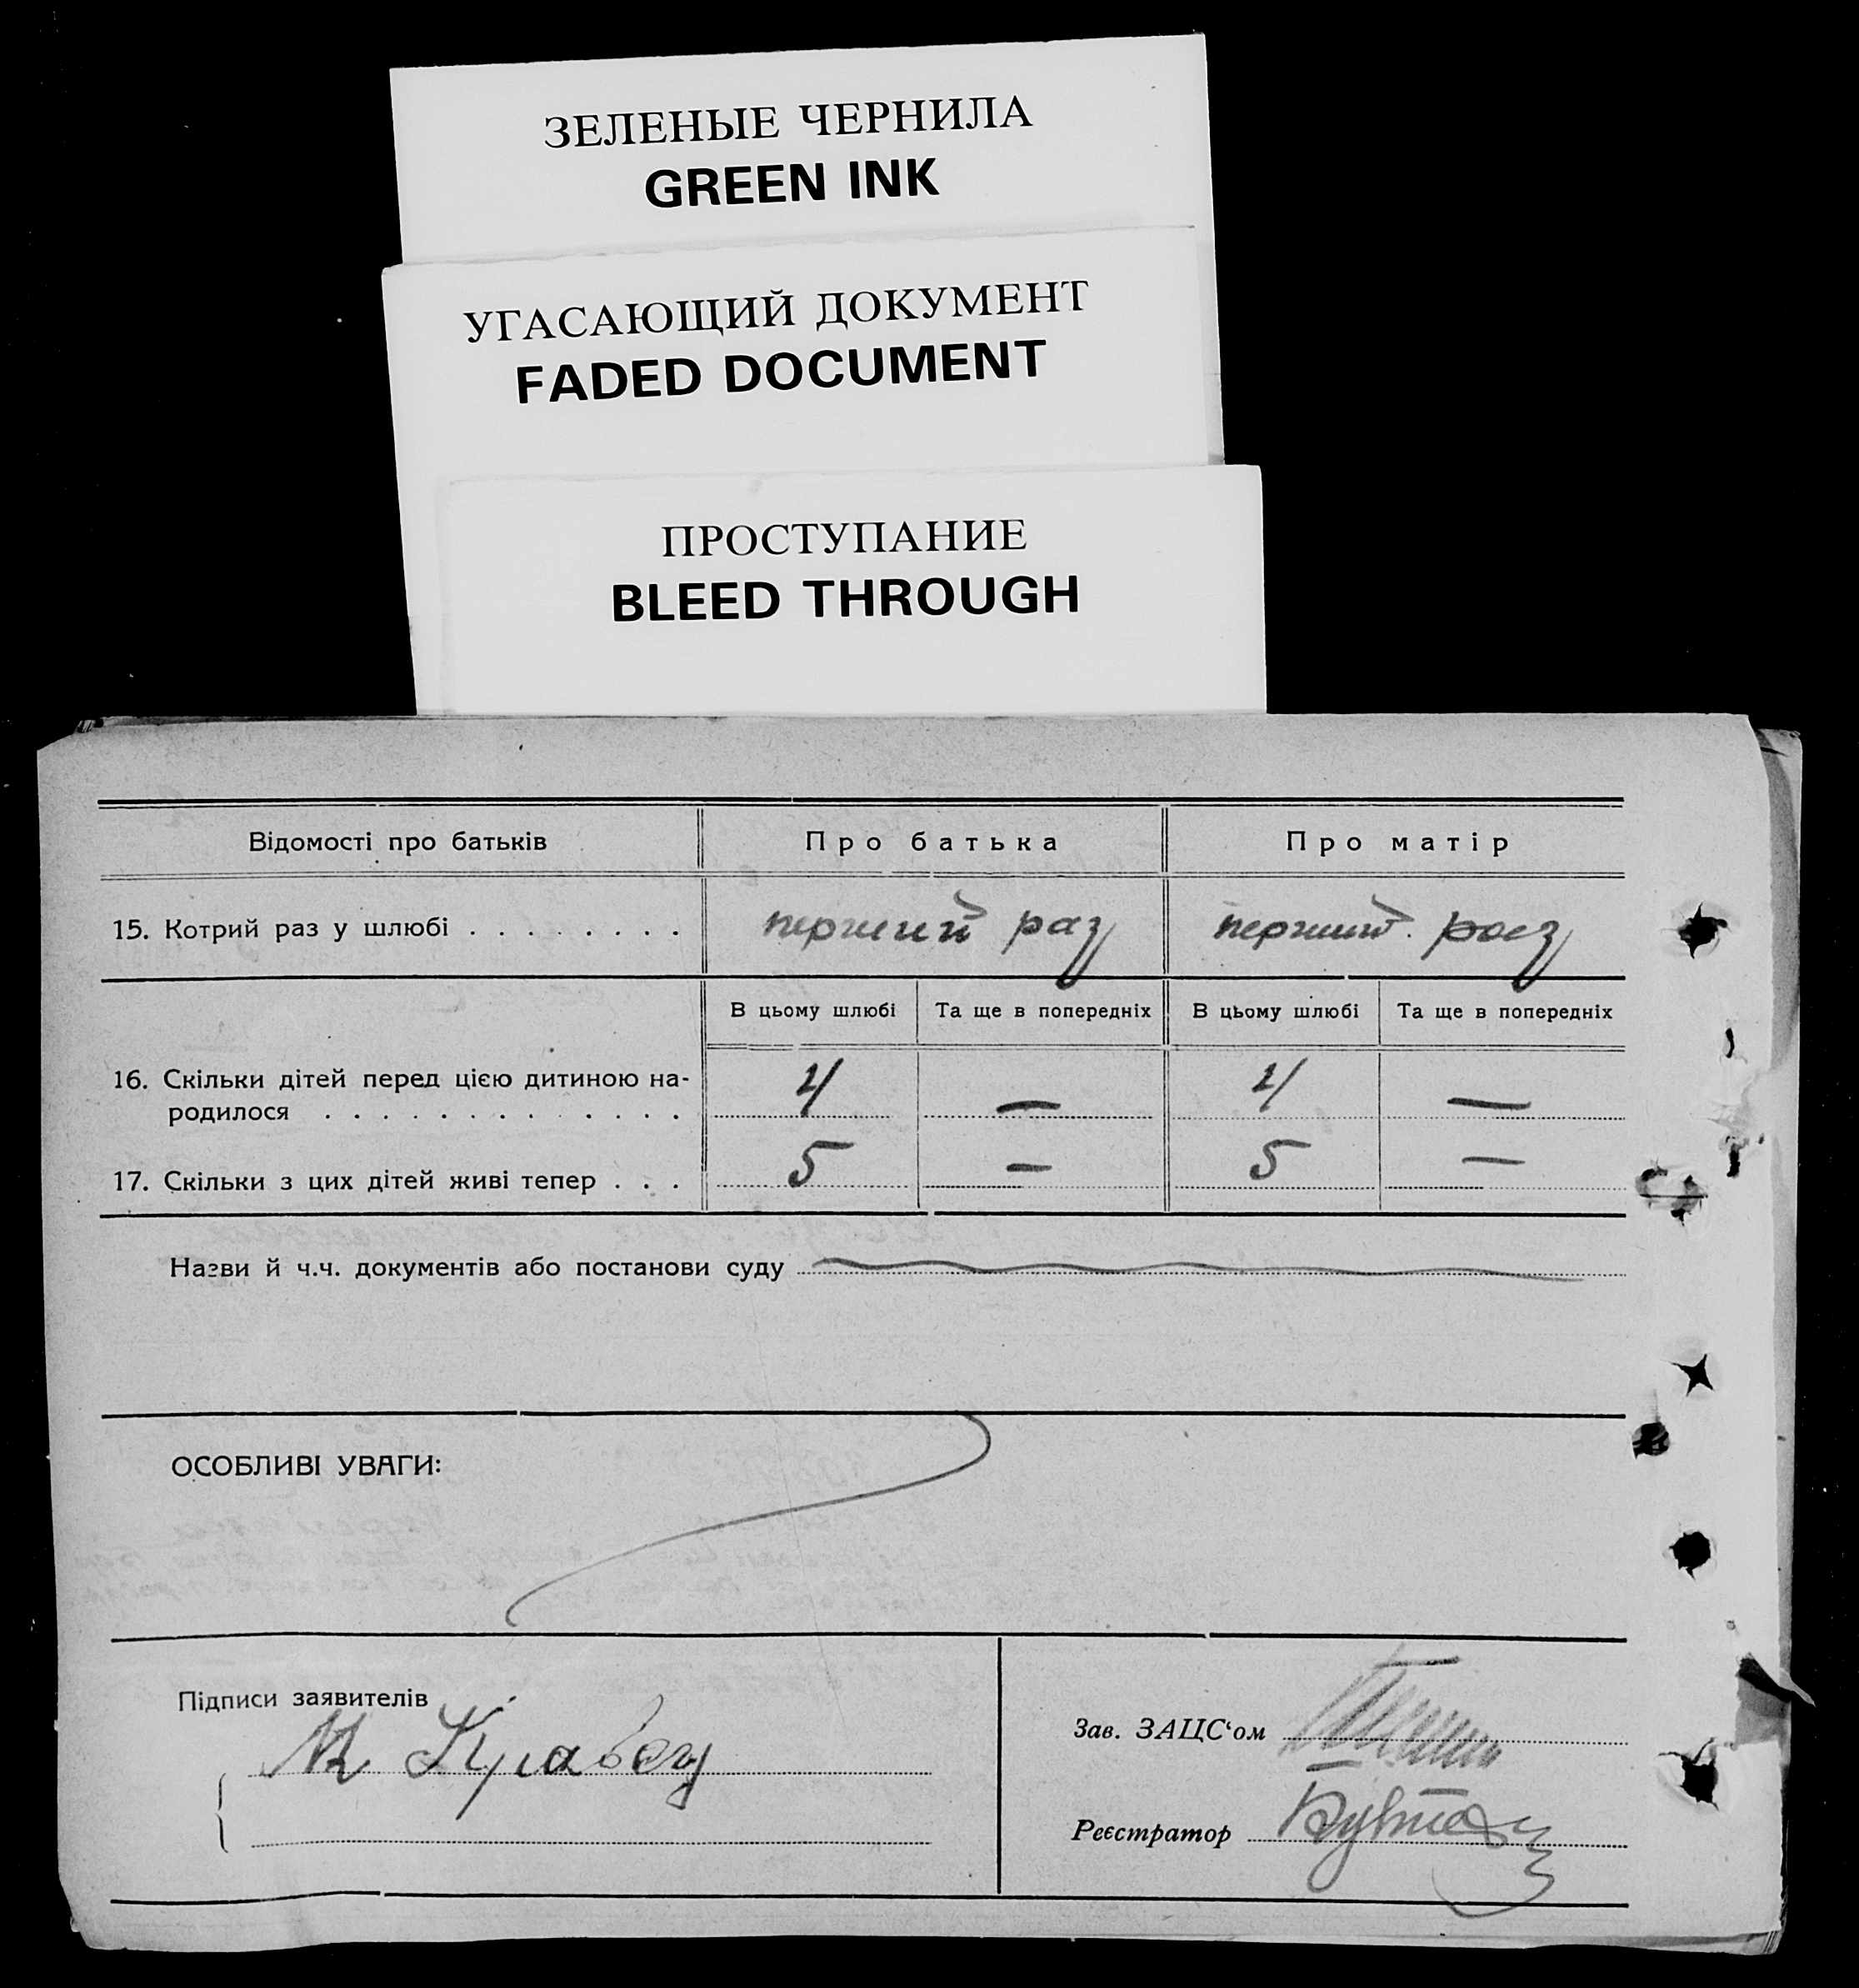 ЗЕЛЕНЫЕ ЧЕРНИЛА
GREEN INK
УГАСАЮЩИЙ ДОКУМЕНТ
FADED DOCUMENT
ПРОСТУПАНИЕ
BLEED THROUGH
Відомості про батьків Про батька Про матір
15. Котрий раз у шлюбі . . . . . . . . перший раз перший раз
В цьому шлюбі Та ще в попередніх В цьому шлюбі Та ще в попередніх
16. Скільки дітей перед цією дитиною на-
родилося . . . . . . . . . . . . . 4 — 4 —
17. Скільки з цих дітей живі тепер . . . 5 — 5 —
Назви й ч.ч. документів або постанови суду
ОСОБЛИВІ УВАГИ:
Підписи заявителів
Зав. ЗАЦС‘ом
Реєстратор